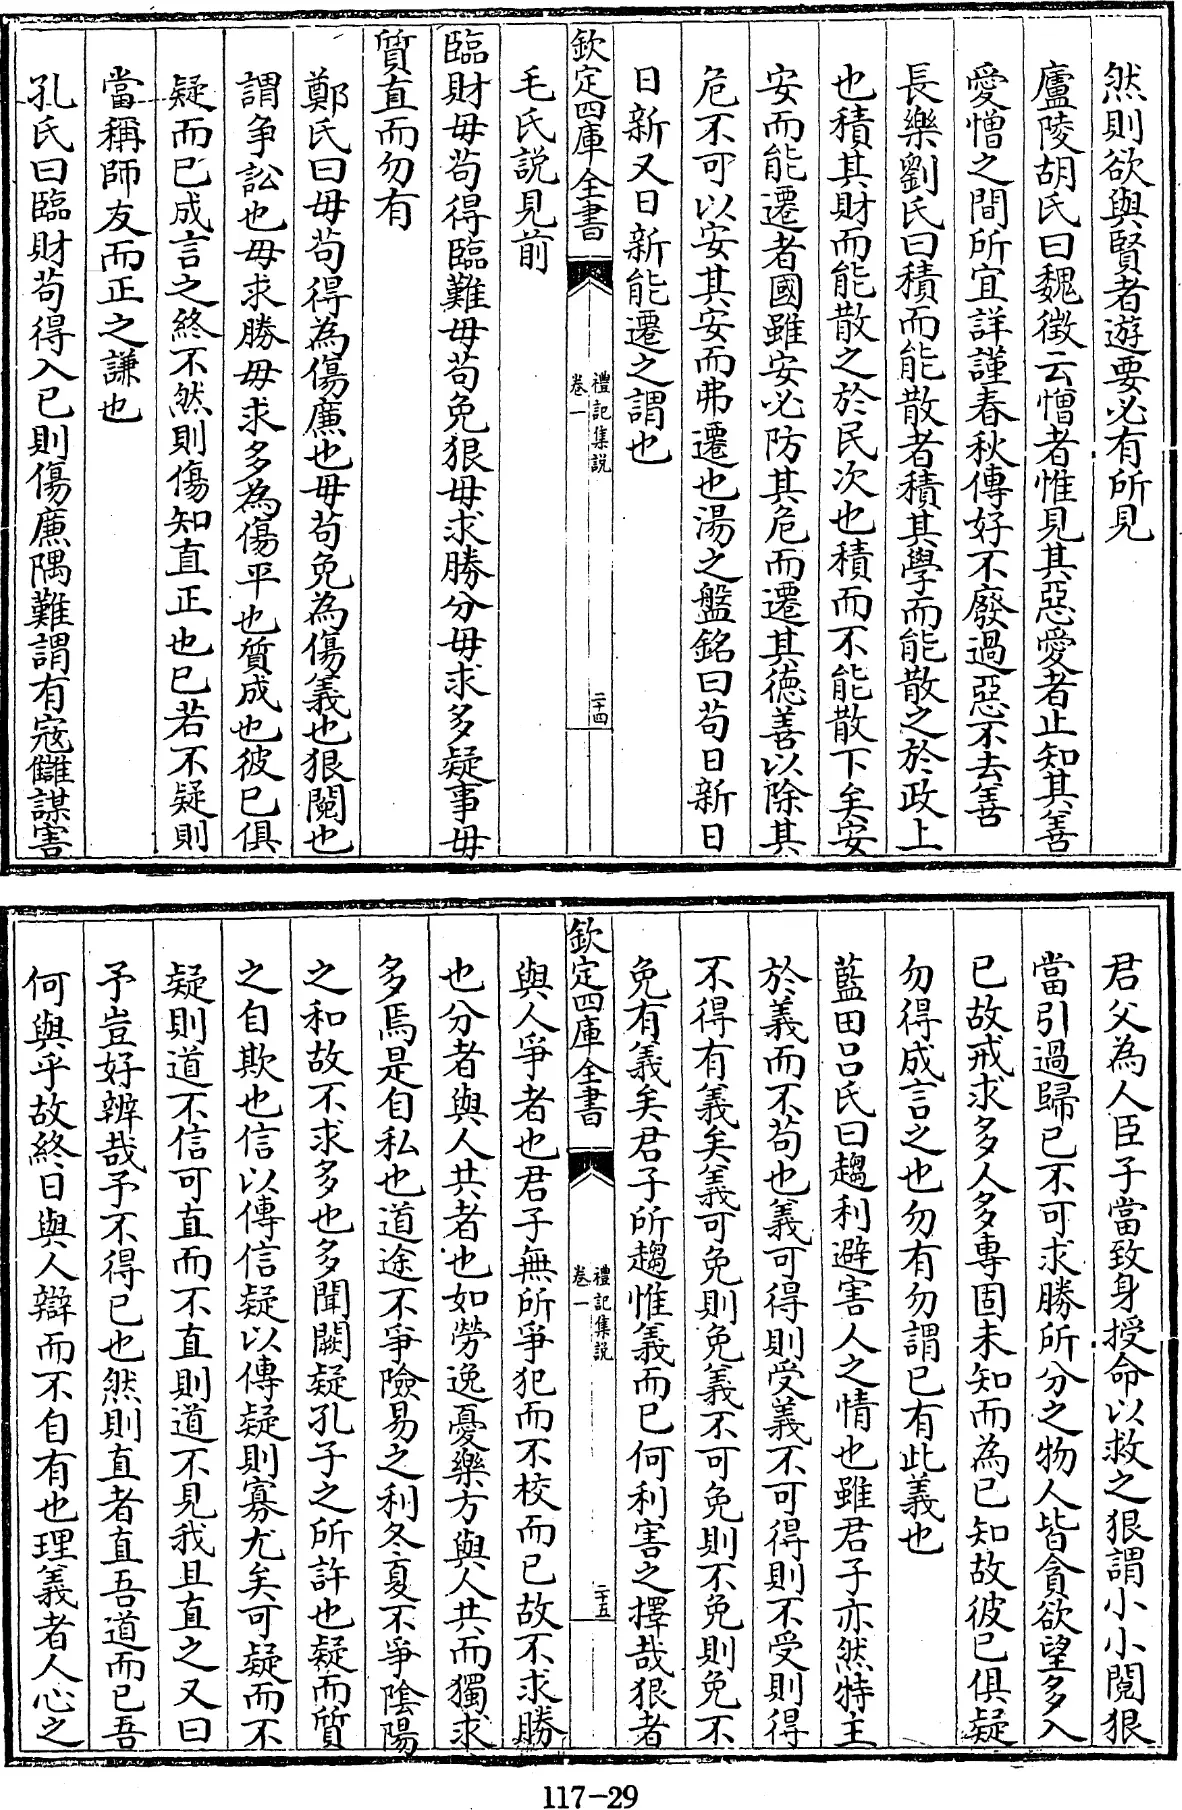 然則欲與賢者遊要必有所見
廬陵胡氏曰魏徵云憎者惟見其惡愛者止知其善
愛憎之間所宜詳謹春秋傳好不廢過惡不去善
長樂劉氏曰積而能散者積其學而能散之於政上
也積其財而能散之於民次也積而不能散下矣安
安而能遷者國雖安必防其危而遷其徳善以除其
危不可以安其安而弗遷也湯之盤銘曰苟日新日
日新又日新能遷之謂也
毛氏説見前
欽定四庫全書
禮記集説
卷一
二十四
臨財毋苟得臨難毋苟免狠毋求勝分毋求多疑事毋
質直而勿有
鄭氏曰毋苟得為傷廉也毋苟免為傷義也狠鬩也
謂爭訟也毋求勝毋求多為傷平也質成也彼已俱
疑而已成言之終不然則傷知直正也已若不疑則
當稱師友而正之謙也
孔氏曰臨財苟得入已則傷廉隅難謂有寇讎謀害
君父為人臣子當致身授命以救之狠謂小小鬩狠
當引過歸已不可求勝所分之物人皆貪欲望多入
已故戒求多人多專固未知而為已知故彼已俱疑
勿得成言之也勿有勿謂已有此義也
藍田吕氏曰趨利避害人之情也雖君子亦然特主
於義而不苟也義可得則受義不可得則不受則得
不得有義矣義可免則免義不可免則不免則免不
免有義矣君子所趨惟義而已何利害之擇哉狠者
欽定四庫全書
禮記集説
卷一
二十五
與人爭者也君子無所爭犯而不校而已故不求勝
也分者與人共者也如勞逸憂樂方與人共而獨求
多焉是自私也道途不爭險易之利冬夏不爭陰陽
之和故不求多也多聞闕疑孔子之所許也疑而質
之自欺也信以傳信疑以傳疑則寡尤矣可疑而不
疑則道不信可直而不直則道不見我且直之又曰
予豈好辨哉予不得已也然則直者直吾道而已吾
何與乎故終日與人辯而不自有也理義者人心之
117-29